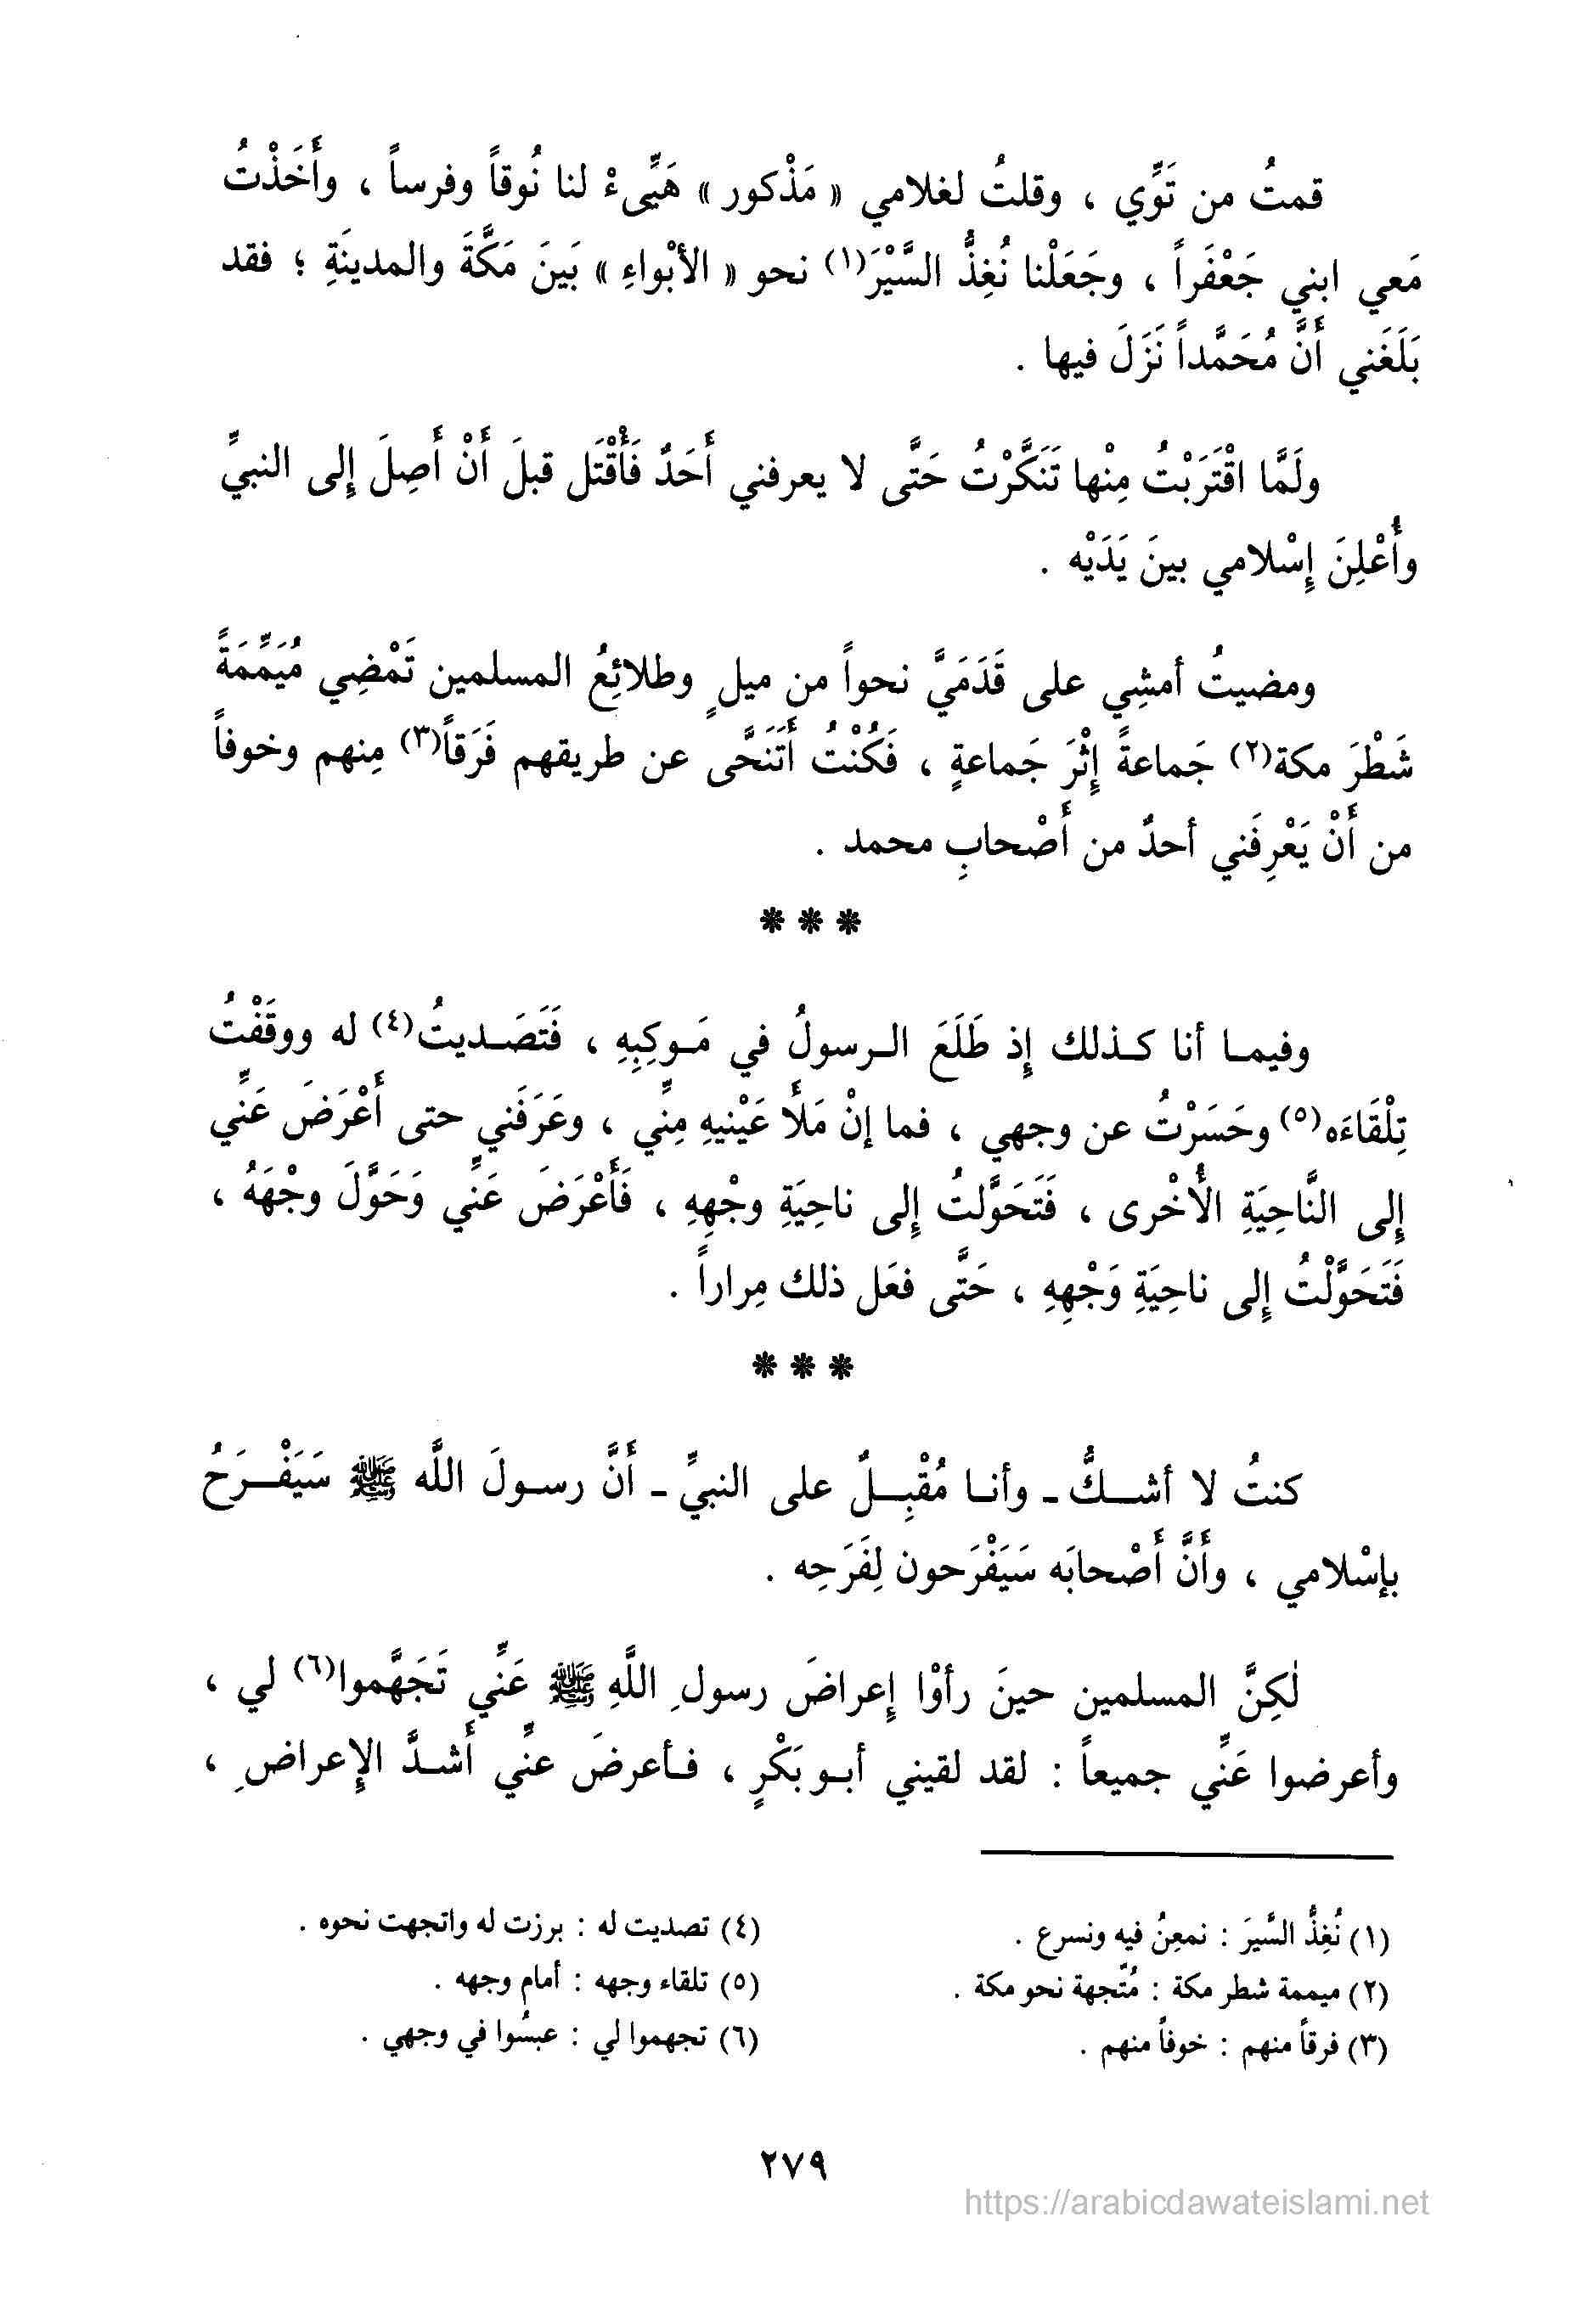 قمتُ من تَوِّي ، وقلتُ لغلامي « مَذْكور » هَيِّىءْ لنا نُوقاً وفرساً ، وأَخَذْتُ
مَعي ابني جَعْفَراً ، وجَعَلْنا نُغِذُّ السَّيْرَ(١) نحو « الأبْواءِ » بَينَ مَكَّةَ والمدينَةِ ؛ فقد
بَلَغَني أَنَّ مُحَمَّداً نَزَلَ فيها .
ولَمَّا اقْتَرَبْتُ مِنْها تَنَكَّرْتُ حَتَّى لا يعرفني أَحَدٌ فَأُقْتَل قبلَ أَنْ أَصِلَ إِلى النبيِّ
وأُعْلِنَ إِسْلامي بينَ يَدَيْه .
ومضيتُ أمشِي على قَدَمَيَّ نحواً من ميلٍ وطلائِعُ المسلمين تَمْضِي مُيَمِّمَةً
شَطْرَ مكة(٢) جَماعةً إِثْرَ جَماعةٍ ، فَكُنْتُ أَتَنَحَّى عن طريقهم فَرَقاً(٣) مِنهم وخوفاً
من أَنْ يَعْرِفَني أحدٌ من أَصْحابِ محمد .
* * *
وفيما أنا كذلك إِذ طَلَعَ الرسولُ في مَوكِبِهِ ، فَتَصَديتُ(٤) له ووقَفْتُ
تِلْقَاءَه(٥) وحَسَرْتُ عن وجهي ، فما إنْ مَلأَ عَيْنيهِ مِنِّي ، وعَرَفَني حتى أَعْرَضَ عَنِّي
إِلى النَّاحِيَةِ الأُخْرى ، فَتَحَوَّلتُ إِلى ناحِيَةِ وجْهِهِ ، فَأَعْرَضَ عَنِّي وَحَوَّلَ وجْهَهُ ،
فَتَحَوَّلْتُ إِلى ناحِيَةِ وَجْهِهِ ، حَتَّى فعَل ذلك مِراراً .
* * *
كنتُ لا أشكُّ - وأنا مُقْبِلٌ على النبيِّ - أَنَّ رسولَ اللَّه ﷺ سَيَفْرَحُ
بإسْلامي ، وأَنَّ أَصْحابَه سَيَفْرَحون لِفَرَحِه .
لٰكِنَّ المسلمين حينَ رأوْا إِعراضَ رسولِ اللَّهِ ﷺ عَنِّي تَجَهَّموا(٦) لي ،
وأعرضوا عَنِّي جميعاً : لقد لقيني أبو بَكْرٍ ، فأعرضَ عنِّي أَشدَّ الإِعراضِ ،
(١) نُغِذُّ السَّيرَ : نمعِنُ فيه ونسرع .
(٢) ميممة شطر مكة : مُتّجهة نحو مكة .
(٣) فرقاً منهم : خوفاً منهم .
(٤) تصديت له : برزت له واتجهت نحوه .
(٥) تلقاء وجهه : أمام وجهه .
(٦) تجهموا لي : عبسُوا في وجهي .
٢٧٩
https://arabicdawateislami.net